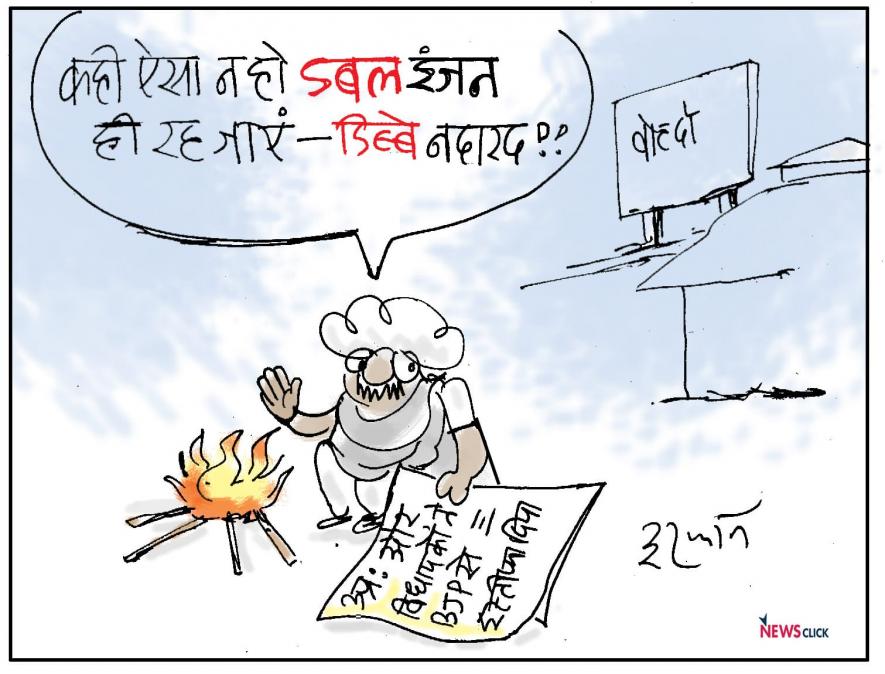 कही ऐसा न हो डबल इंजन
ही रह जाएं – डिब्बे नदारद ??
वोट दो
उप्र: और
विधायकों ने
BJP से
इस्तीफा दिया
इरफान
NEWSCLICK